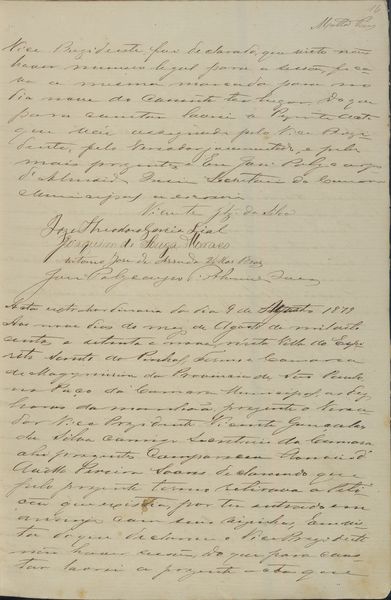 16
Vice Prezidente, foi declarado, que visto não
haver numero legal para a sessão, fica
va a mesma marcada para no
dia nove do corrente ter lugar, do que
para constar lavrei a presente acta
que vai assignada pelo Vice Prezi
dente, pelo Vereador juramentado, e pelos
mais prezentes. Eu José Polycarpo
d'Almeida Secretario da Camara
Municipal a escrevi
Vicente Glz da Silva
José Theodoro Garcia Leal
Joaquim de Souza Moraes
Antonio José de
José Polycarpo d'Almeida
Acta extraordinaria do dia 9 de Agosto 1879
Aos nove dias do mez de Agosto de mil oito
centos e setenta e nove, nesta Villa do Espi
rito Santo do Pinhal, Termo e Comarca
de Mogymirim da Provincia de São Paulo
no Paço da Camara Municipal as dez
horas da manhã prezente o Verea
dor Vice Prezidente Vicente Gonçalves
da Silva commigo Secretario da Camara
ahi prezente compareceu
Soares declarando que
pelo prezente termo retirava a peti
ção que
com seus
ta do que declarou o Vice Prezidente
não haver sessão, do que para cons
tar lavrei a prezente acta que